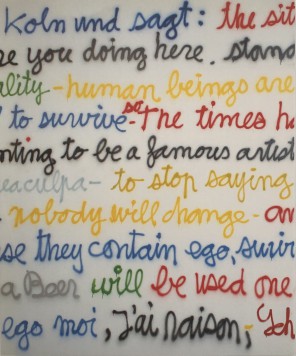 Koln und sagt: the sit
re you doing here. stand
ality - human beings are
to survive - se The times h
nting to be a famous artist
eaculpa - to stop saying
nobody will change - an
se they contain ego, surviv
a Beer will be used one
ego moi, J'ai raison; Ich